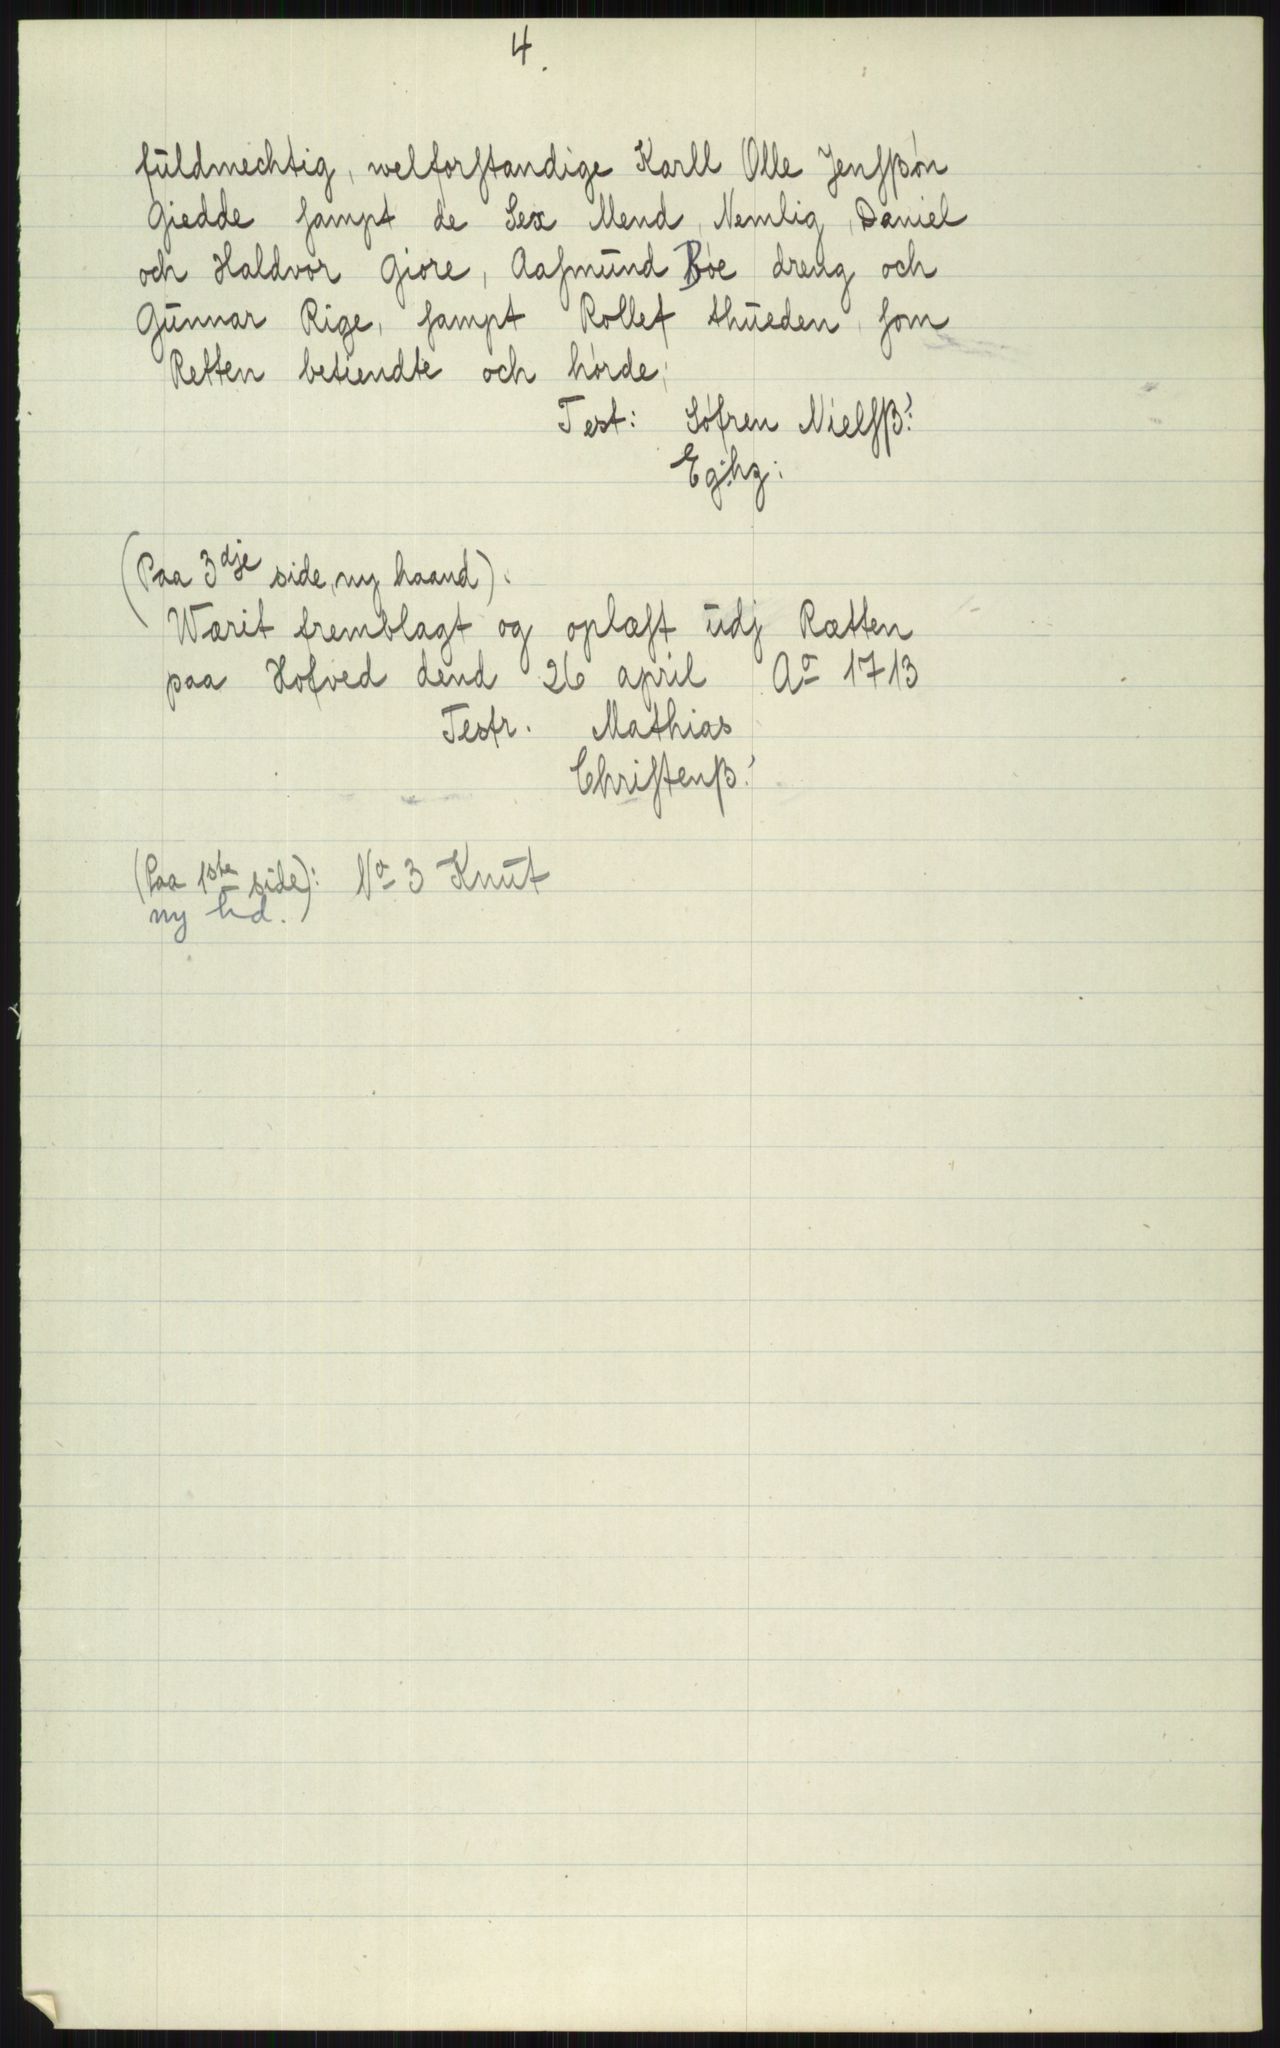 4.
fūldmechtig, welforſtandige Karll Olle Jenſßón
Giedde ſampt de Sex Mend, Nemlig, Daniel
och Haldvor Giore, Aaſmūnd Bóe dreng och
Gūnnar Rige, ſampt Rollef thūeden, ſom
Retten betiendte och hórde;
Test: Sófren Nielſß:
Eg:hz:
(Paa 3dje side, ny haand).
Wærit fremblagt og oplæſt ūdj Rætten
paa Hofved dend 26 april Ao 1713
Testr. Mathias
Chriſtenß:
(Paa 1ste side): No 3 Knūt
ny hd.